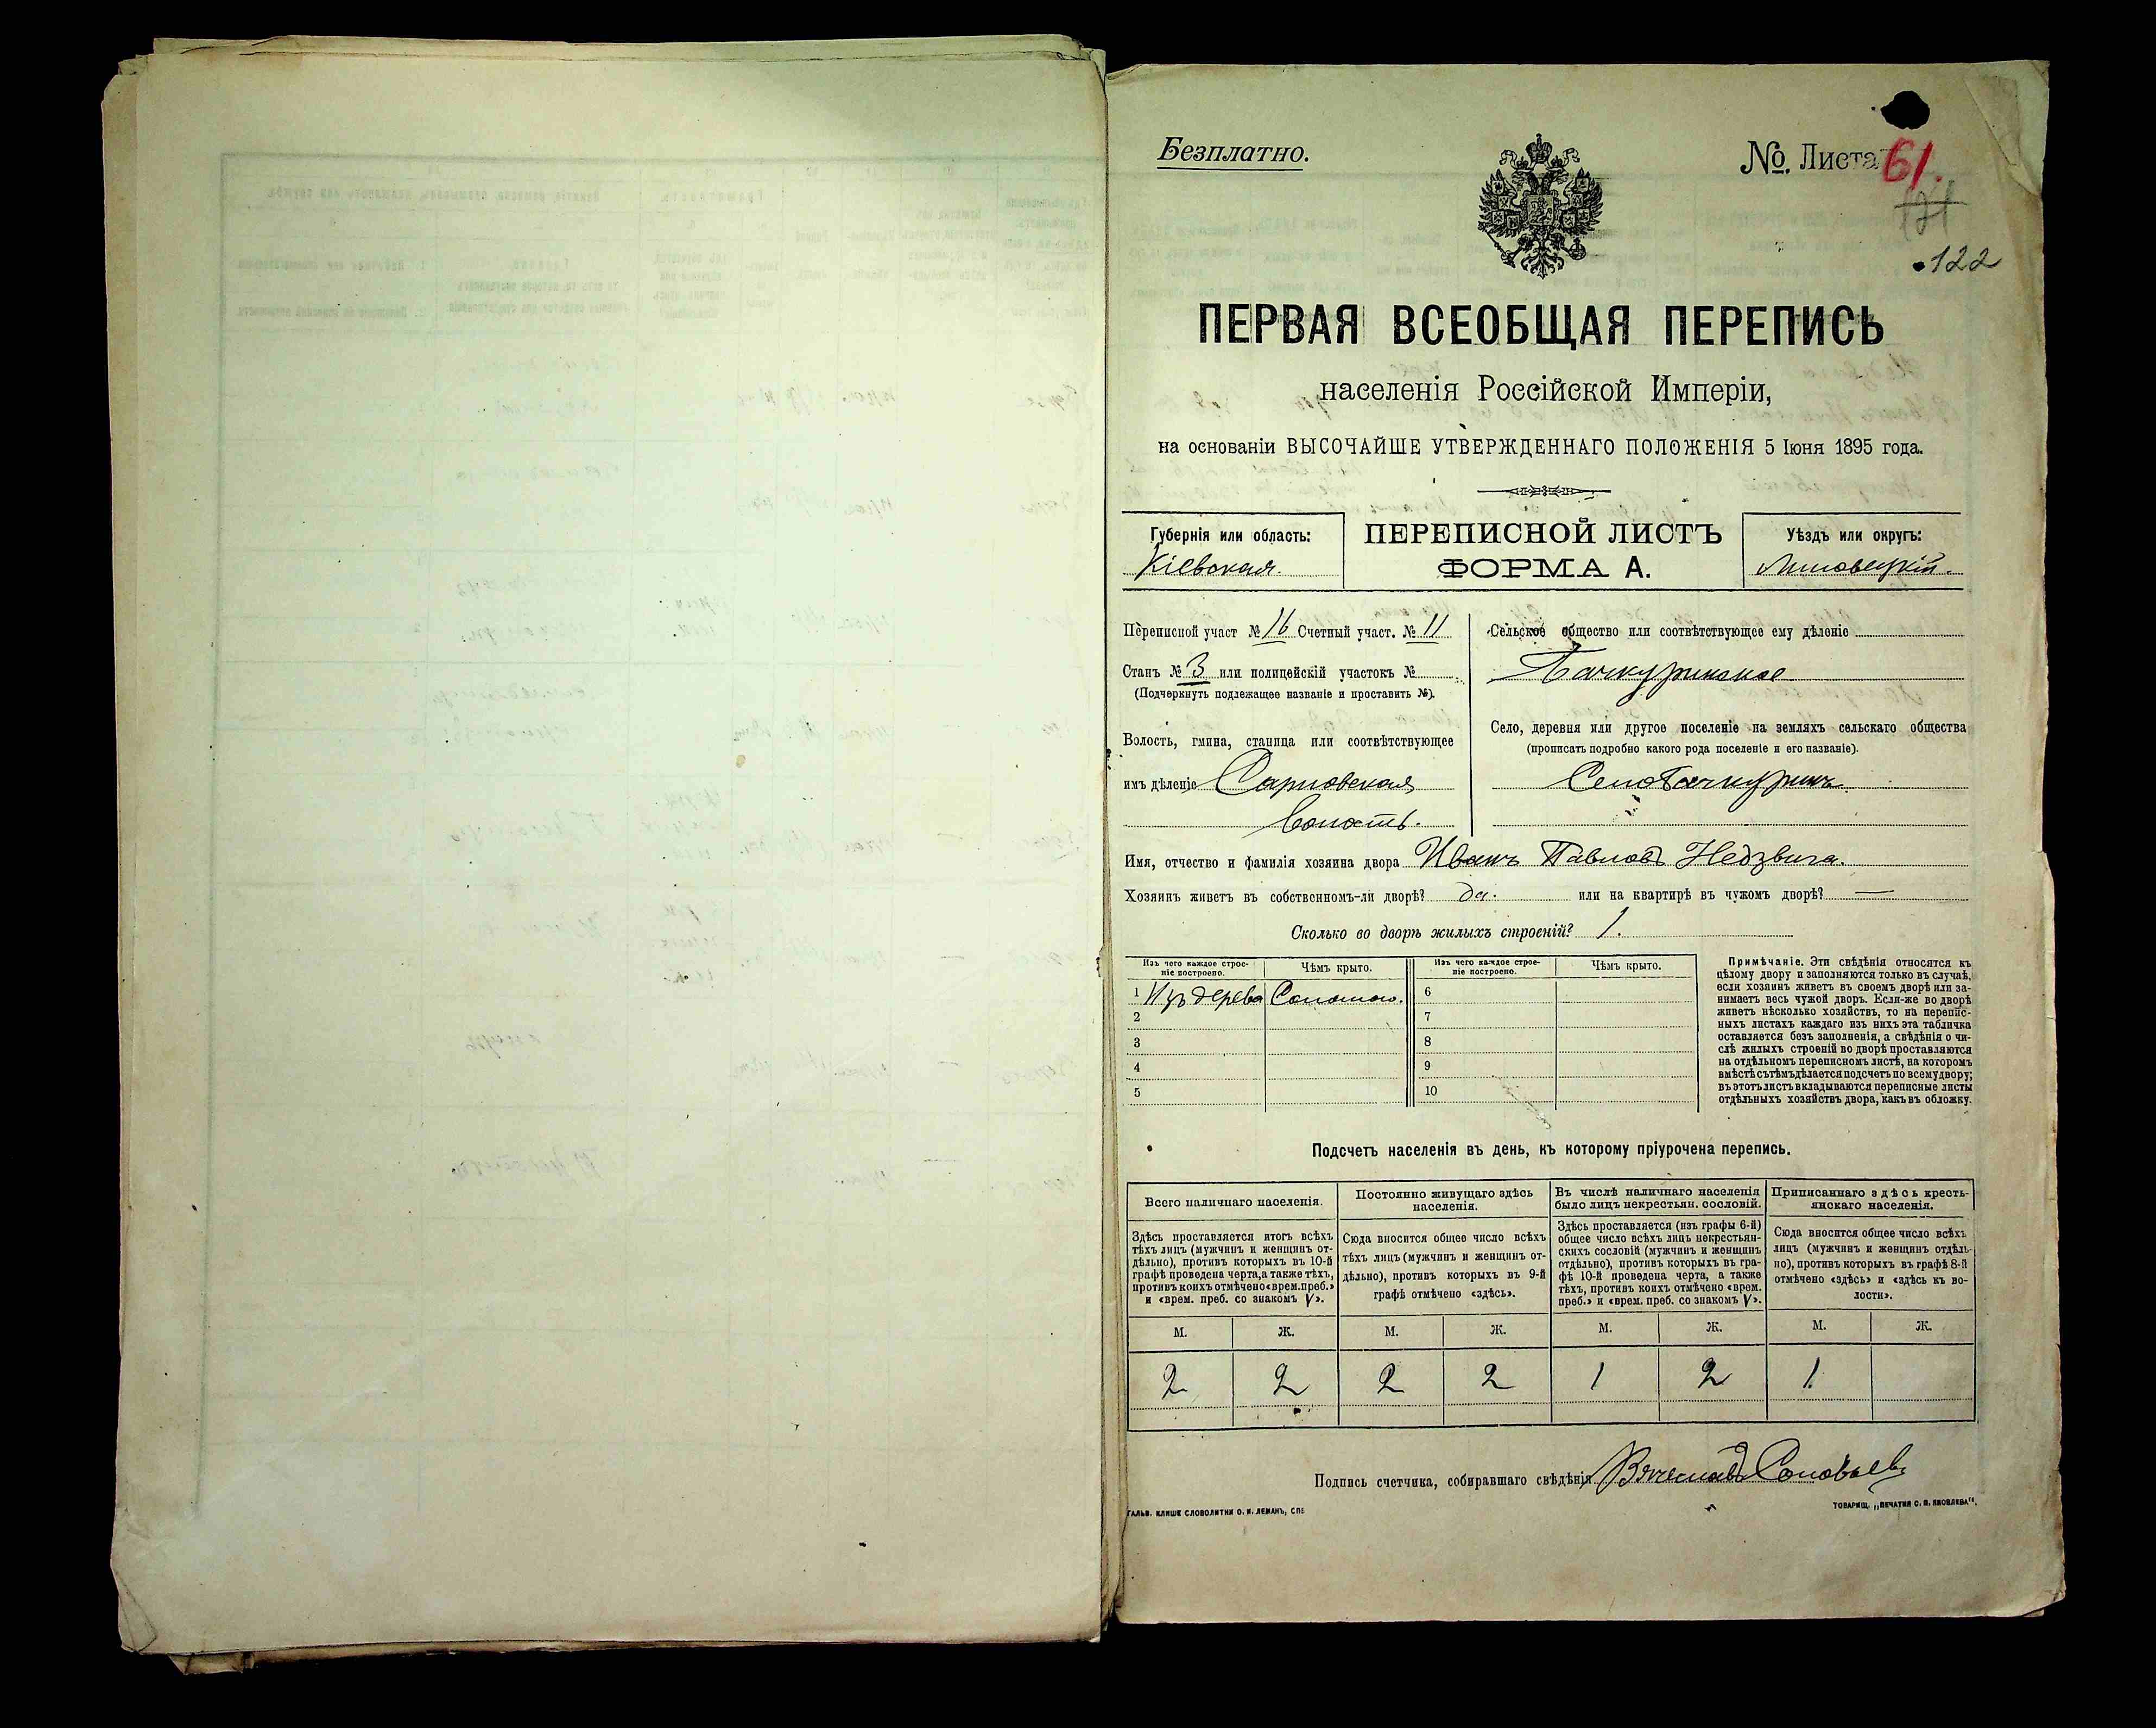 Безплатно.
№. Листа 61.
121
122
ПЕРВАЯ ВСЕОБЩАЯ ПЕРЕПИСЬ
населенія Россійской Имперіи,
на основаніи ВЫСОЧАЙШЕ УТВЕРЖДЕННАГО ПОЛОЖЕНІЯ 5 Іюня 1895 года.
Губернія или область:
Кіевская.
ПЕРЕПИСНОЙ ЛИСТЪ
ФОРМА А.
Уѣздъ или округъ:
Липовецкій.
Переписной участ № 16 Счетный участ. № 11
Станъ № 3 или полицейскій участокъ №
(Подчеркнуть подлежащее названіе и проставить №).
Волость, гмина, станица или соотвѣтствующее
имъ дѣленіе Сарновская
Волость.
Сельское общество или соотвѣтствующее ему дѣленіе
Бачкуринское
Село, деревня или другое поселеніе на земляхъ сельскаго общества
(прописать подробно какого рода поселеніе и его названіе).
Село Бачкуринъ.
Имя, отчество и фамилія хозяина двора Иванъ Павловъ Недзвига.
Хозяинъ живетъ въ собственномъ-ли дворѣ? да. или на квартирѣ въ чужомъ дворѣ? —
Сколько во дворѣ жилыхъ строеній? 1.
Изъ чего каждое строе-
ніе построено.
Чѣмъ крыто.
Изъ чего каждое строе-
ніе построено.
Чѣмъ крыто.
1 Изъ дерева Соломою. 6
2 7
3 8
4 9
5 10
Примѣчаніе. Эти свѣдѣнія относятся къ
цѣлому двору и заполняются только въ случаѣ,
если хозяинъ живетъ въ своемъ дворѣ или за-
нимаетъ весь чужой дворъ. Если-же во дворѣ
живетъ нѣсколько хозяйствъ, то на перепис-
ныхъ листахъ каждаго изъ нихъ эта табличка
оставляется безъ заполненія, а свѣдѣнія о чи-
слѣ жилыхъ строеній во дворѣ проставляются
на отдѣльномъ переписномъ листѣ, на которомъ
вмѣстѣ съ тѣмъ дѣлается подсчетъ по всему двору;
въ этотъ листъ вкладываются переписные листы
отдѣльныхъ хозяйствъ двора, какъ въ обложку.
Подсчетъ населенія въ день, къ которому пріурочена перепись.
Всего наличнаго населенія.
Здѣсь проставляется итогъ всѣхъ
тѣхъ лицъ (мужчинъ и женщинъ от-
дѣльно), противъ которыхъ въ 10-й
графѣ проведена черта, а также тѣхъ,
противъ коихъ отмѣчено «врем. преб.»
и «врем. преб. со знакомъ V».
Постоянно живущаго здѣсь
населенія.
Сюда вносится общее число всѣхъ
тѣхъ лицъ (мужчинъ и женщинъ от-
дѣльно), противъ которыхъ въ 9-й
графѣ отмѣчено «здѣсь».
Въ числѣ наличнаго населенія
было лицъ некрестьян. сословій.
Здѣсь проставляется (изъ графы 6-й)
общее число всѣхъ лицъ некрестьян-
скихъ сословій (мужчинъ и женщинъ
отдѣльно), противъ которыхъ въ гра-
фѣ 10-й проведена черта, а также
тѣхъ, противъ коихъ отмѣчено «врем.
преб.» и «врем. преб. со знакомъ V».
Приписаннаго здѣсь кресть-
янскаго населенія.
Сюда вносится общее число всѣхъ
лицъ (мужчинъ и женщинъ отдѣль-
но), противъ которыхъ въ графѣ 8-й
отмѣчено «здѣсь» и «здѣсь къ во-
лости».
М. Ж. М. Ж. М. Ж. М. Ж.
2 2 2 2 1 2 1.
Подпись счетчика, собиравшаго свѣдѣнія Вячеславъ Соловьевъ
ГАЛЬВ. КЛИШЕ СЛОВОЛИТНИ О. И. ЛЕМАНЪ, СПБ
ТОВАРИЩ. „ПЕЧАТНЯ С. П. ЯКОВЛЕВА“.